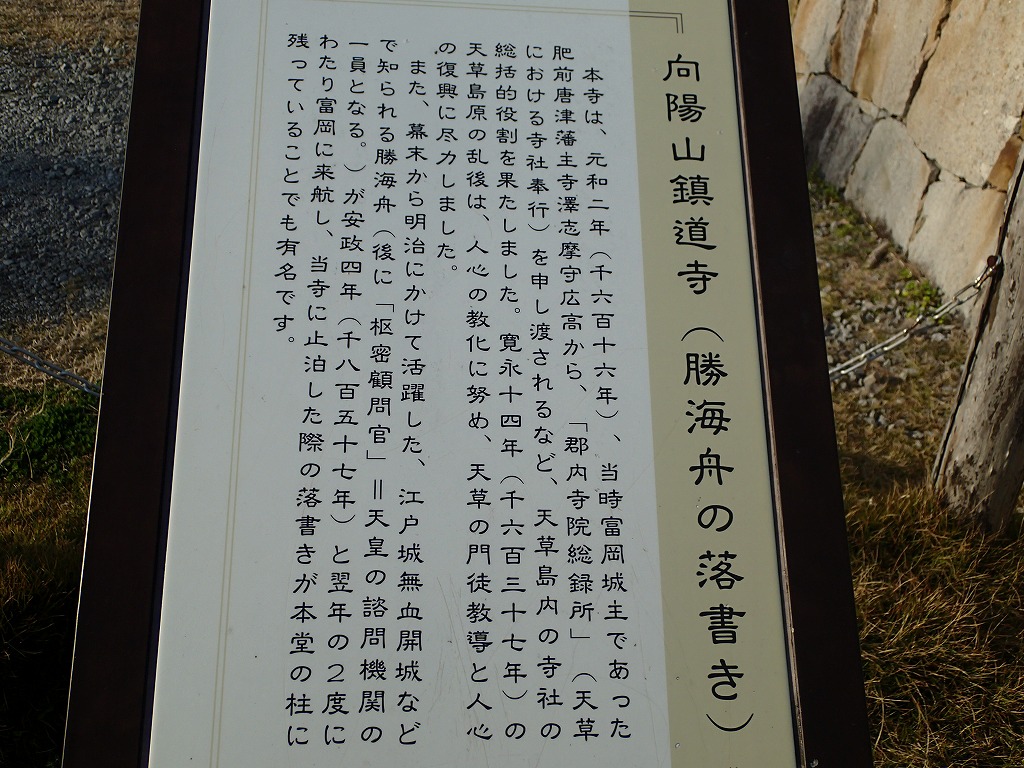 向陽山鎮道寺（勝海舟の落書き）
本寺は、元和二年（千六百十六年）、当時富岡城主であった
肥前唐津藩主寺澤志摩守広高から、「郡内寺院総録所」（天草
における寺社奉行）を申し渡されるなど、天草島内の寺社の
総括的役割を果たしました。寛永十四年（千六百三十七年）の
天草島原の乱後は、人心の教化に努め、天草の門徒教導と人心
の復興に尽力しました。
また、幕末から明治にかけて活躍した、江戸城無血開城など
で知られる勝海舟（後に「枢密顧問官」＝天皇の諮問機関の
一員となる。）が安政四年（千八百五十七年）と翌年の２度に
わたり富岡に来航し、当寺に止泊した際の落書きが本堂の柱に
残っていることでも有名です。